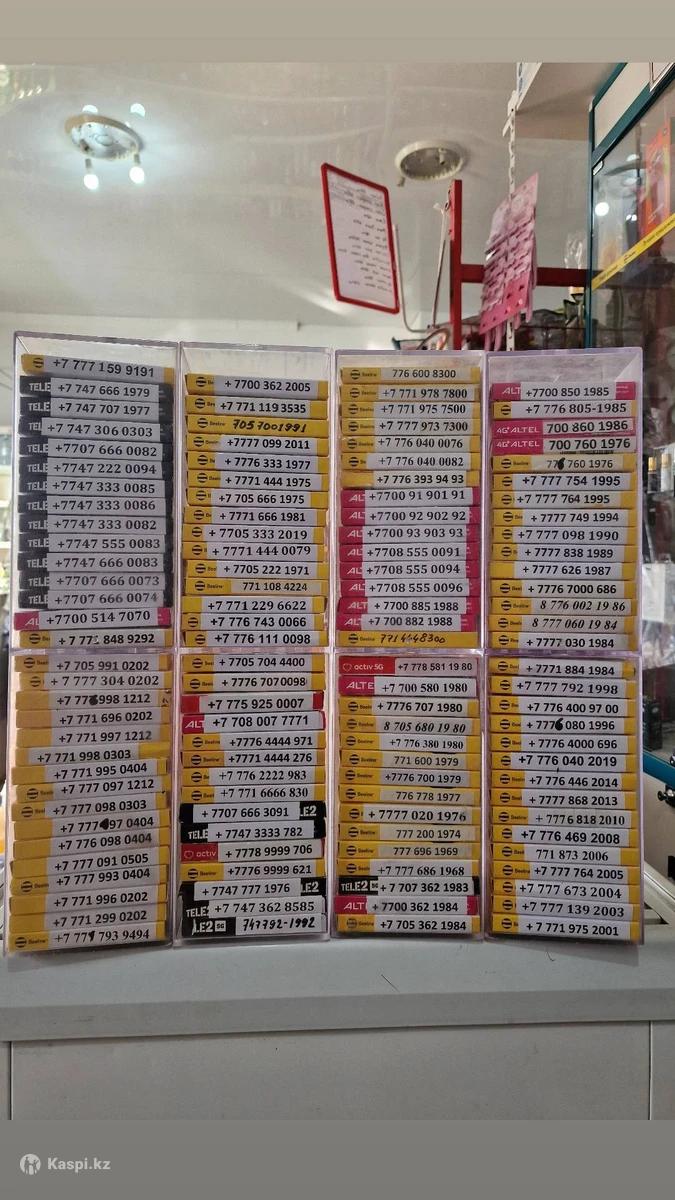 +7 777 159 9191
TELE +7 747 666 1979
TELE +7 747 707 1977
+7 747 306 0303
TELE +7707 666 0082
TELE +7747 222 0094
TELE +7747 333 0085
TELE +7747 333 0086
TELE +7747 333 0082
TELE +7747 555 0083
TELE +7747 666 0083
TELE +7707 666 0073
TELE +7707 666 0074
AL +7700 514 7070
Beeline +7 771 848 9292
+ 7700 362 2005
+7 771 119 3535
7057001991
+7777 099 2011
+7776 333 1977
+7771 444 1975
+7 705 666 1975
+7771 666 1981
+7705 333 2019
+7771 444 0079
+7705 222 1971
Beeline 771 108 4224
+7 771 229 6622
+7 776 743 0066
+7 776 111 0098
Beeline 776 600 8300
+7 771 978 7800
+7 771 975 7500
+7 777 973 7300
+7 776 040 0076
+7 776 040 0082
+7 776 393 94 93
ALT +7700 91 901 91
ALT +7700 92 902 92
ALT +7700 93 903 93
ALT +7708 555 0091
ALT +7708 555 0094
ALT +7708 555 0096
ALT +7700 885 1988
ALT +7 700 882 1988
Beeline 771 4448300
ALT +7700 850 1985
+7 776 805-1985
4G ALTEL 700 860 1986
4G ALTEL 700 760 1976
Beeline 776 760 1976
+7 777 754 1995
+7 777 764 1995
+ 7777 749 1994
+7 777 098 1990
+7777 838 1989
+7777 626 1987
+7776 7000 686
8 776 002 19 86
8 777 060 19 84
+7777 030 1984
Beeline +7 705 991 0202
+ 7 777 304 0202
+7 776 998 1212
+7 771 696 0202
+7 771 997 1212
+7 771 998 0303
+7 771 995 0404
+7 777 097 1212
+7 777 098 0303
+7 777 997 0404
+7 776 098 0404
+7 777 091 0505
+7 777 993 0404
+7 771 996 0202
+7 771 299 0202
Beeline +7 777 793 9494
+7705 704 4400
+7776 707 0098
+7 775 925 0007
ALT +7 708 007 7771
+7776 4444 971
+7771 4444 276
+7 776 2222 983
+7 771 6666 830
+7707 666 3091 E2
TELE +7747 3333 782
activ +7778 9999 706
+7776 9999 621
+7747 777 1976 LE2
TELE2 +7 747 362 8585
LE2 5G 747792-1992
activ 5G +7 778 581 19 80
ALTE +7 700 580 1980
+7776 707 1980
8 705 680 19 80
Beeline +7 776 380 1980
Beeline 771 600 1979
+7776 700 1979
Beeline 776 778 1977
+ 7777 020 1976
Beeline 777 200 1974
Beeline 777 696 1969
+7 777 686 1968
TELE2 5G +7 707 362 1983
ALT +7700 362 1984
+7 705 362 1984
+7771 884 1984
+7 777 792 1998
+7 776 400 97 00
+7776 080 1996
+776 4000 696
+776 040 2019
+7 776 446 2014
+7777 868 2013
+ 777 6 818 2010
+7 776 469 2008
Beeline 771 873 2006
+7 777 764 2005
+7 777 673 2004
+7 777 139 2003
+7 771 975 2001
Kaspi.kz